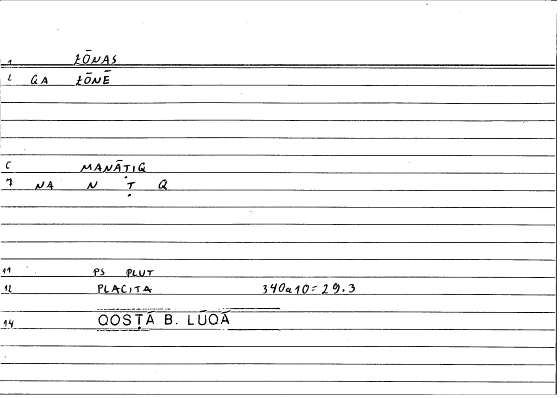 1 ŁŌNAS
2 GA ŁŌNĒ
6 MANĀṬIQ
7 NA N Ṭ Q
11 PS PLUT
12 PLACITA 340a10 = 29.3
14 QOSṬĀ B. LŪQĀ